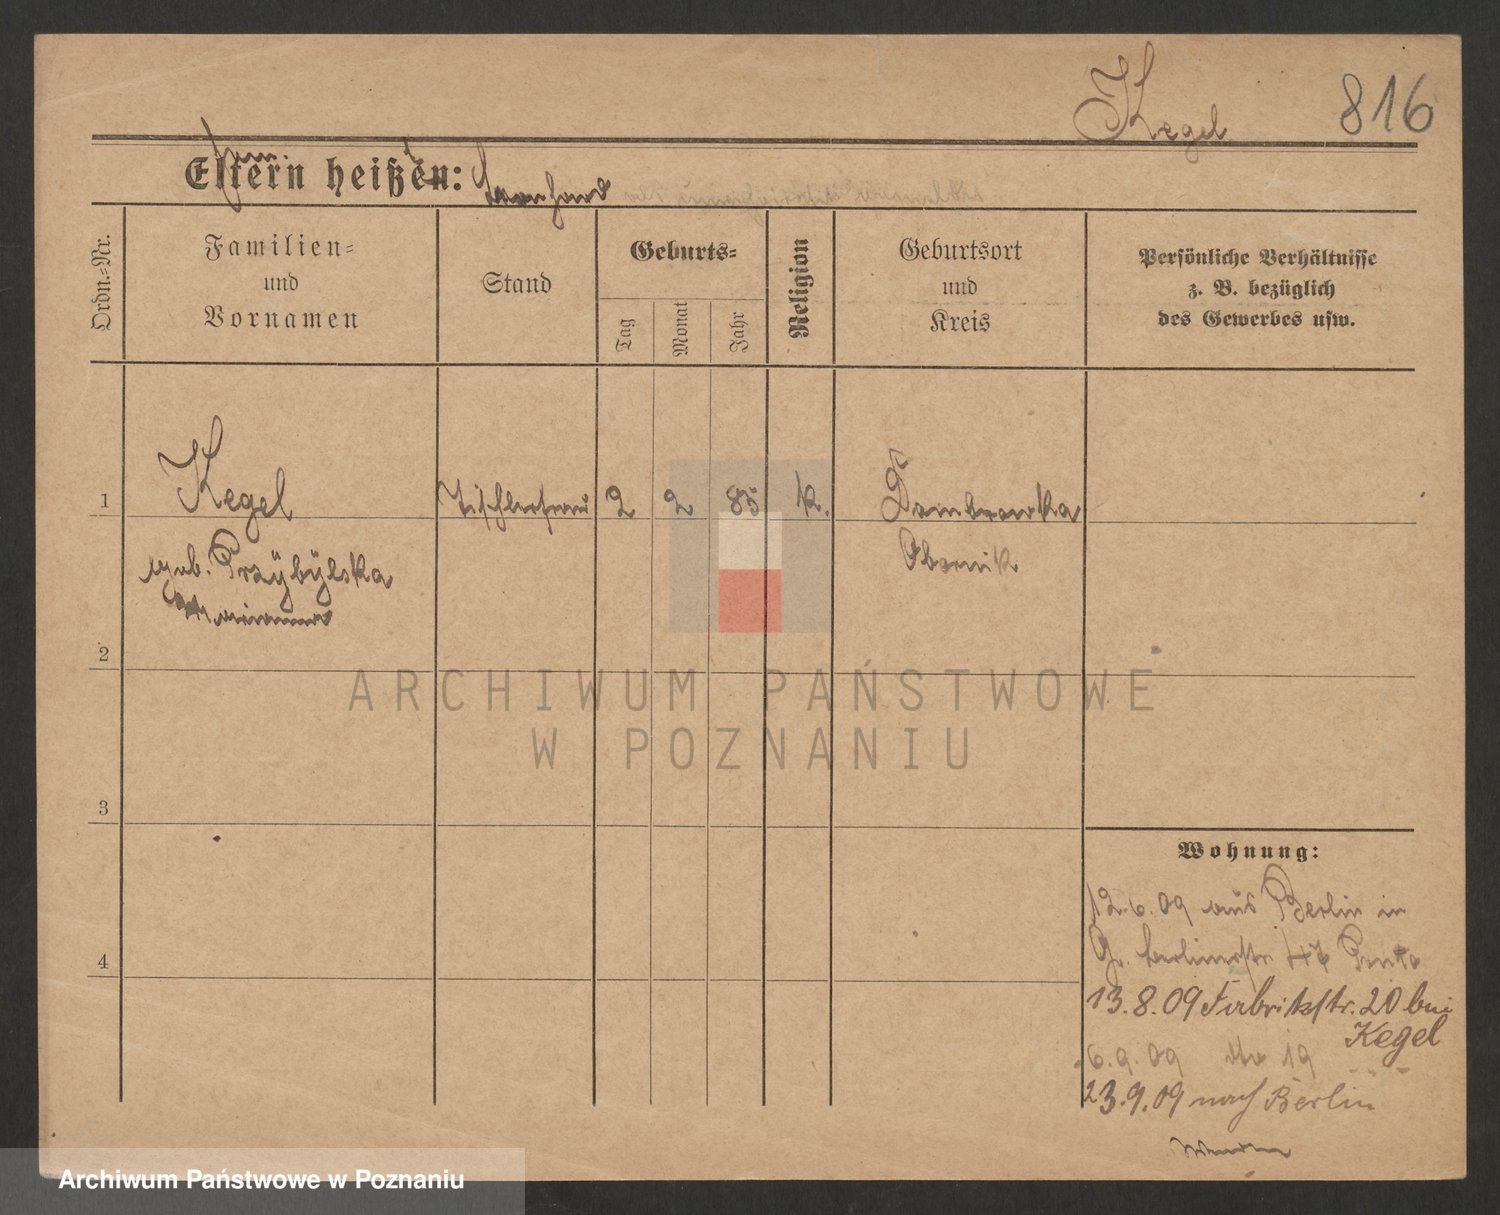 Kegel 816
Eltern heißen:
Ordn.-Nr.
Familien-
und
Vornamen
Stand
Geburts-
Tag
Monat
Jahr
Religion
Geburtsort
und
Kreis
Persönliche Verhältnisse
z. B. bezüglich
des Gewerbes usw.
1 Kegel Tischlerfrau 2 2 85 k. Dombrowka
geb. Przÿbÿlska Obornik
Marianna
2
3
4
ARCHIWUM PAŃSTWOWE
W POZNANIU
Wohnung:
12.6.09 aus Berlin in
Gr. Berlinerstr.
13.8.09 Fabrikstr. 20 bei
Kegel
6.9.09 dto 19
23.9.09 nach Berlin
Archiwum Państwowe w Poznaniu